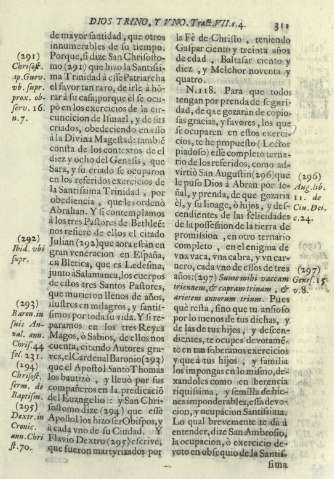 DIOS TRINO, Y UNO. Trat. VII. s.4. 311
de mayor santidad, que otros
innumerables de su tiempo.
Porque, si dize San Chrisosto-
mo (291) que hizo la Santissi-
ma Trinidad à este Patriarcha
el favor tan raro, de irle à hō-
rar à su casa, porque èl se ocu-
pò en los exercicios de la cir-
cuncision de Ismael, y de sus
criados, obedeciendo en ello
à la Divina Magestad: tambiē
consta de los contextos de el
diez y ocho del Genesis, que
Sara, y su criado se ocuparon
en los referidos exercicios de
la Santissima Trinidad, por
obediencia, que les ordenò
Abrahan. Y si contemplamos
à los tres Pastores de Bethleē:
nos refiere de ellos el citado
Julian (292) que aora estàn en
gran veneracion en España,
en Bletica, que es Ledesma,
junto à Salamanca, los cuerpos
de estos tres Santos Pastores,
que murieron llenos de años,
ilustres en milagros, y santis-
simos por toda su vida. Y si re-
paramos en los tres Reyes
Magos, ò Sabios, de ellos nos
cuenta, citando Autores gra-
ves, el Cardenal Baronio (293)
que el Apostol Santo Thomas
los bautizò, y llevò por sus
compañeros en la predicaciō
del Evangelio: y San Chris-
sostomo dize (294) que esse
Apostol los hizo ser Obispos, y
à cada vno de su Ciudad. Y
Flavio Dextro (295) escrive,
que fueron martyrizados por
(291)
Chrisost.
ap. Guev.
vb. supr.
prox. ob-
serv. 16.
n. 7.
(292)
Ibid. vbi
supr.
(293)
Baron. in
suis An-
nal. ann.
Chris. 44
fol. 231.
(294)
Chrisost.
serm. de
Baptism.
(295)
Dextr. in
Cronic.
ann. Chri
st. 70.
la Fè de Christo, teniendo
Gaspar ciento y treinta años
de edad, Baltasar ciento y
diez, y Melchor noventa y
quatro.
N. 118. Para que todos
tengan por prenda de segari-
dad, de que gozaràn de copio-
sas gracias, y favores, los que
se ocuparen en estos exerci-
cios, te he propuesto (Lector
piadoso) este completo terna-
rio de los referidos, como ad-
virtiò San Augustin (296) que
le puso Dios à Abran por se-
ñal, y prenda, de que gozaria
èl, y su linage, ò hijos, y des-
cendientes de las felicidades
de la possession de la tierra de
promission, en otro ternario
completo, en el enigma de
vna vaca, vna cabra, y vn car-
nero, cada vno de ellos de tres
años: (297) Sume mihi vaccam
triennem, & capram trimam, &
arietem annorum trium. Pues
què resta, sino que tu ansioso
por lo menos de tus dichas, y
de las de tus hijos, y descen-
dientes, te ocupes devotamē-
te en tan soberanos exercicios
y que à tus hijos, y familia
los impongas en lo mismo, de-
xandoles como en herencia
riquissima, y semilla de bie-
nes imponderables, esta devo-
cion, y ocupacion Santissima.
Lo qual brevemente te dà à
entender, dize San Ambrosio,
la ocupacion, ò exercicio de-
voto en obsequio de la Santis-
sima
(296)
Aug. lib.
11. de
Civ. Dei.
c. 24.
(297)
Genes. 15
v. 8.